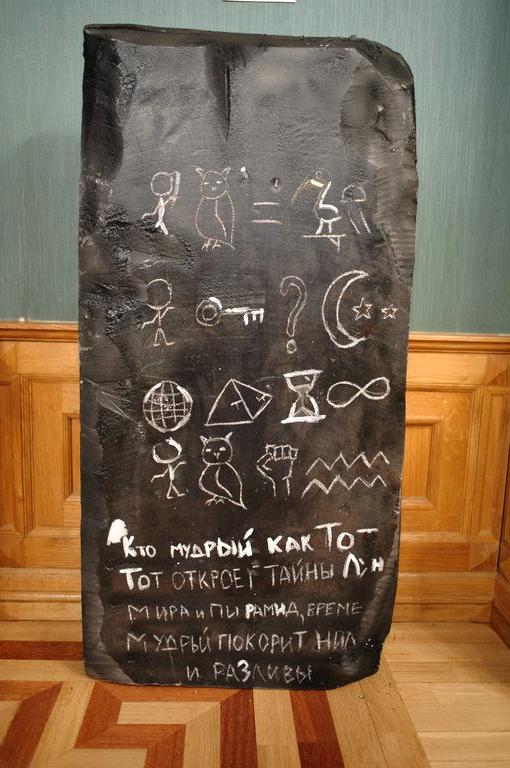 Кто мудрый как Тот
Тот откроет тайны Лун
Мира и пирамид, време
Мудрый покорит Нил
и разливы